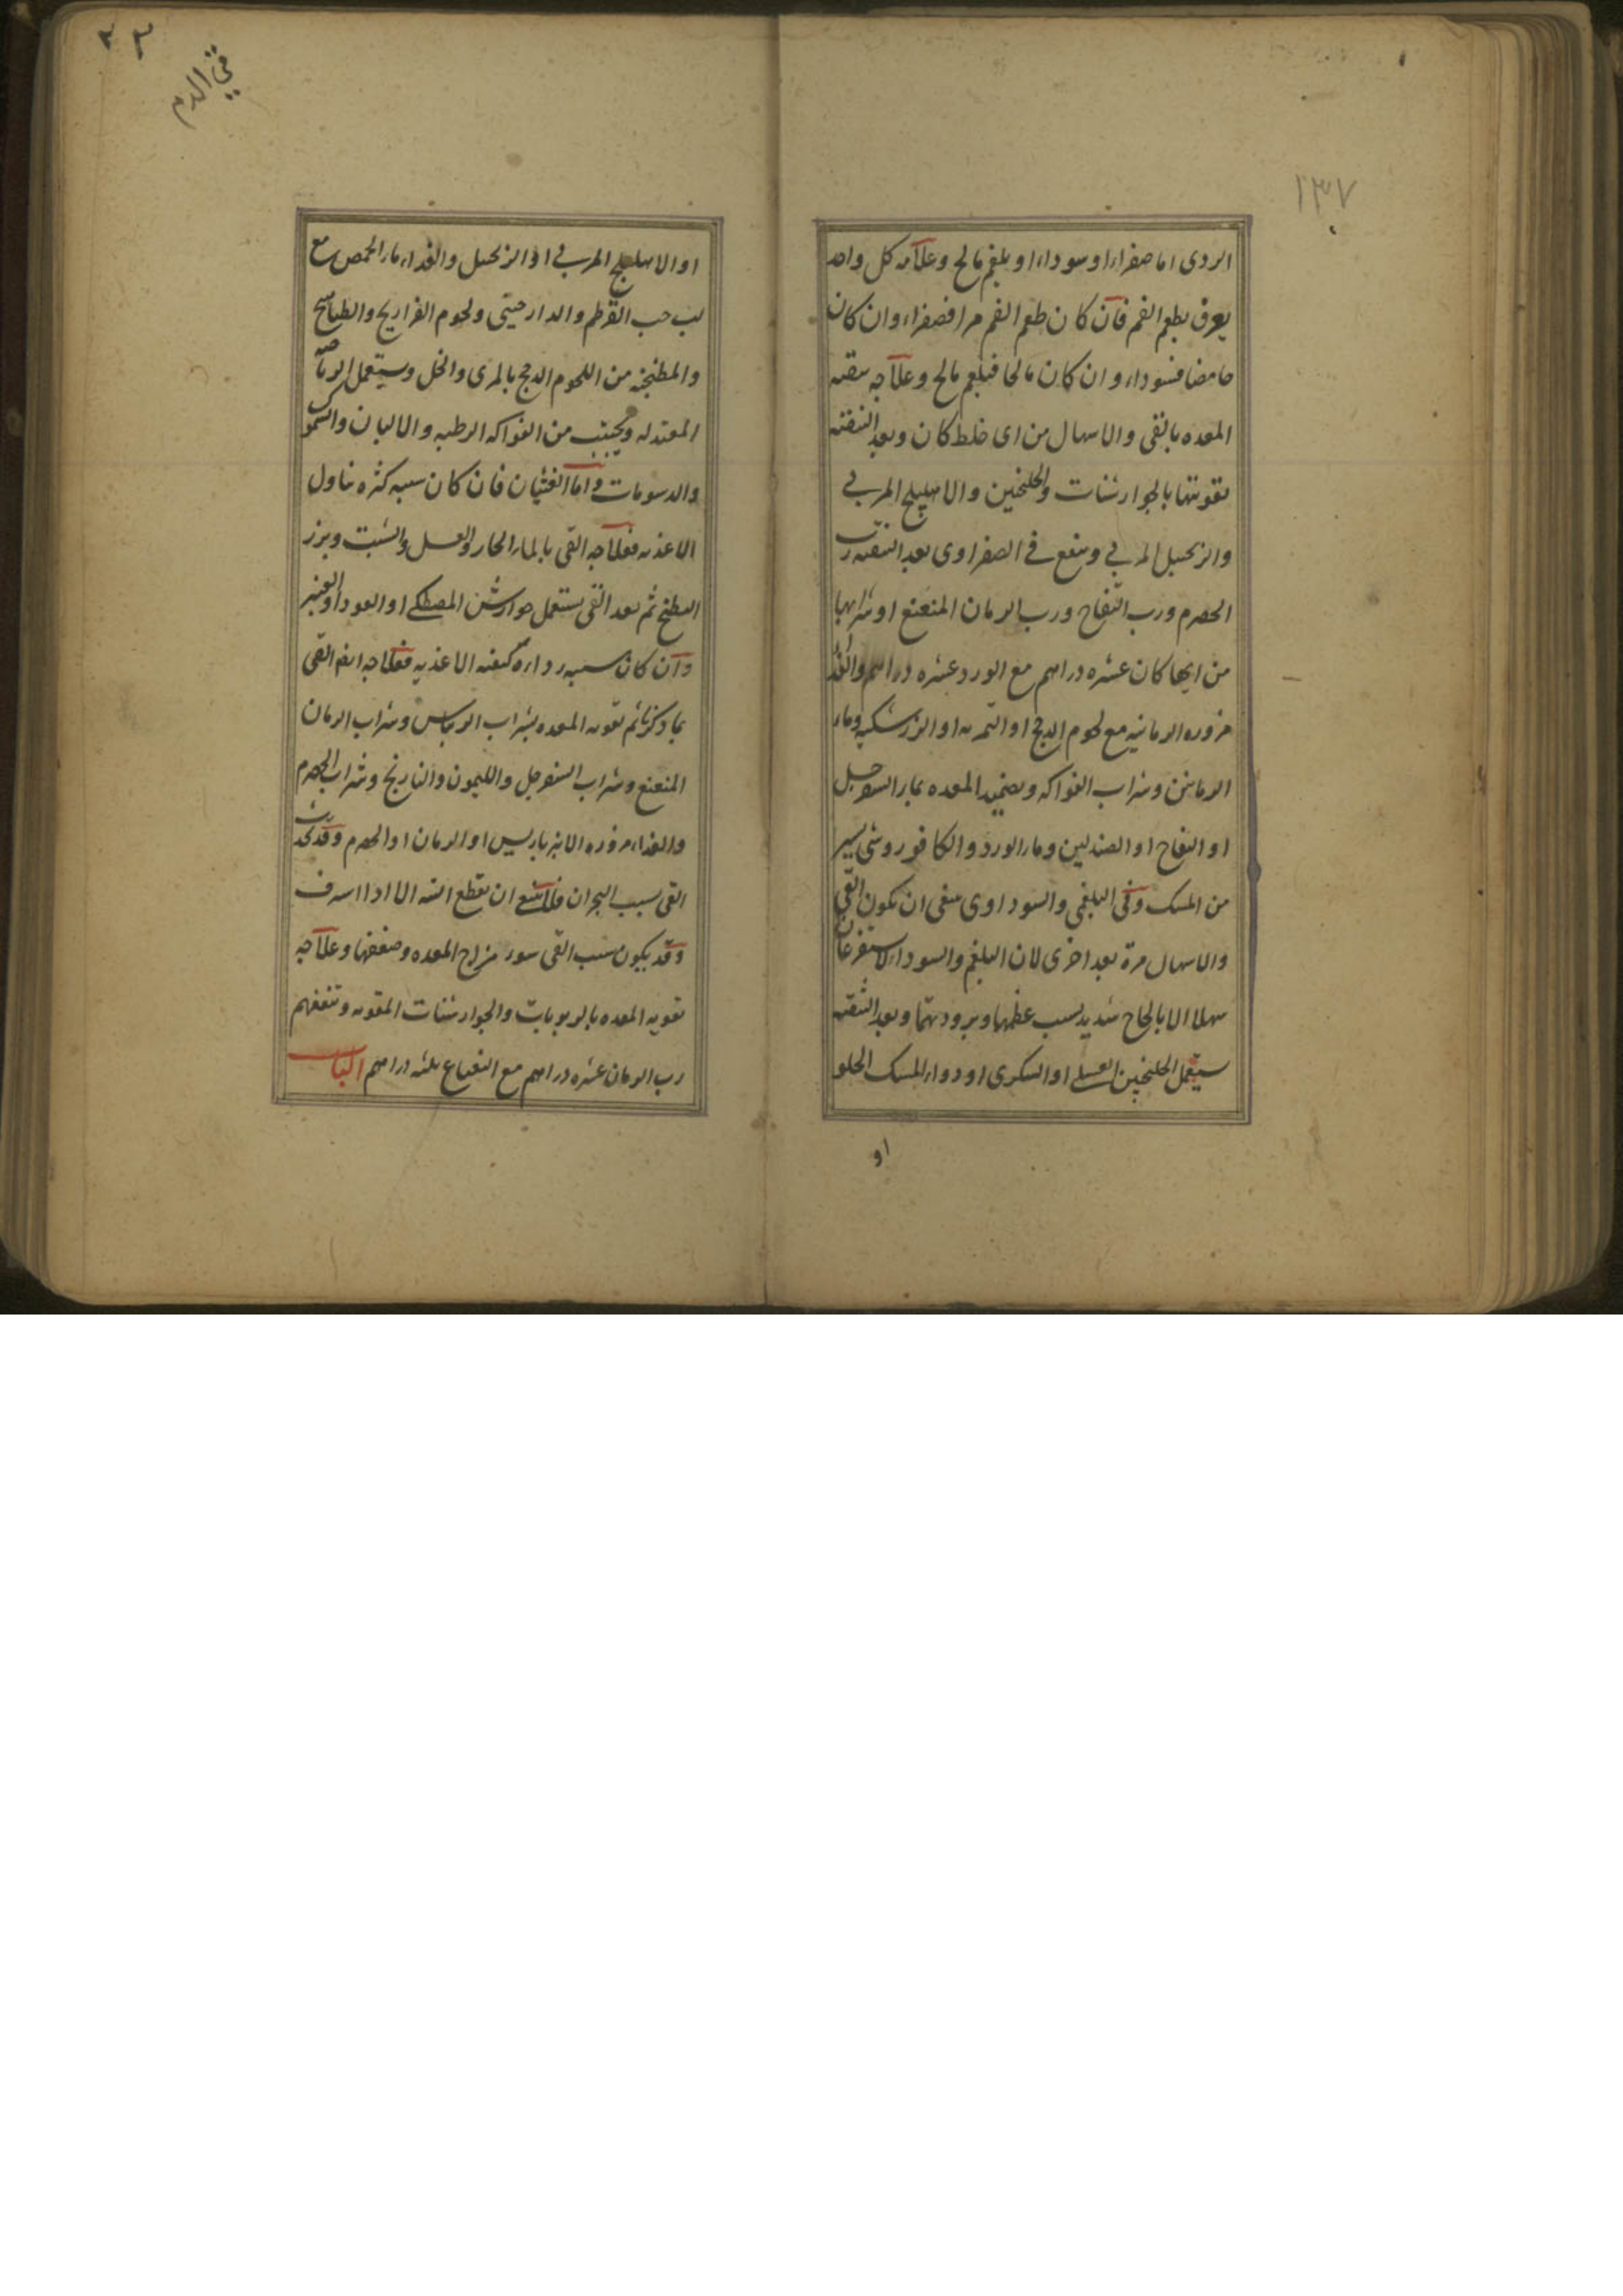 ١٣٧
الردى اما صفراء او سوداء او بلغم مالح وعلامة كل واحد
يعرف بطعم الفم فان كان طعم الفم مرا فصفراء وان كان
حامضا فسوداء وان كان مالحا فبلغم مالح وعلاجه تنقية
المعده بالقى والاسهال من اى خلط كان وبعد التنقية
تقويتها بالجوارشنات والجلنجبين والاهليلج المربى
والزنجبيل المربى وينفع فى الصفراوى بعد التنقية رب
الحصرم ورب التفاح ورب الرمان المنعنع او شرابها
من ايها كان عشره دراهم مع الورد عشره دراهم والغذا
مزوره الرمانيه مع لحوم الدجج او التمريه او الزرشكيه وماء
الرمانين وشراب الفواكه وتضميد المعده بماء السفرجل
او التفاح او الصندلين وماء الورد والكافور وشى يسير
من المسك وفى البلغمى والسوداوى ينبغى ان يكون القى
والاسهال مرة بعد اخرى لان البلغم والسوداء لا يستفرغان
سهلا الا بالحاح شديد لسبب غلظهما وبرودتهما وبعد التنقية
يستعمل الجلنجبين العسلى او السكرى او دواء المسك الحلو
او
او الاهليلج المربى او الزنجبيل والغداء ماء الحمص مع
لب حب القرطم والدارصينى ولحوم الفراريج والطياهيج
والمطنجنه من اللحوم الدجج بالمرى والخل ويستعمل الرياضه
المعتدله ويجتنب من الفواكه الرطبه والالبان والسموك
والدسومات واما الغثيان فان كان سببه كثره تناول
الاغذيه فعلاجه القى بالماء الحار والعسل والشبت وبزر
البطيخ ثم بعد القى يستعمل جوارشن المصطكى او العود او العنبر
وان كان سببه رداءة كيفية الاغذيه فعلاجه ايضا القى
بما ذكرنا ثم تقويه المعده بشراب الريباس وشراب الرمان
المنعنع وشراب السفرجل والليمون والنارنج وشراب الحصرم
والغذاء مزوره الانبرباريس او الرمان او الحصرم وقد يحدث
القى بسبب البحران فلا ينبغى ان يقطع البته الا اذا اسرف
وقد يكون سبب القى سوء مزاج المعده وضعفها وعلاجه
تقويه المعده بالربوبات والجوارشنات المقويه وتنفعهم
رب الرمان عشره دراهم مع النعناع ثلثه دراهم الباب